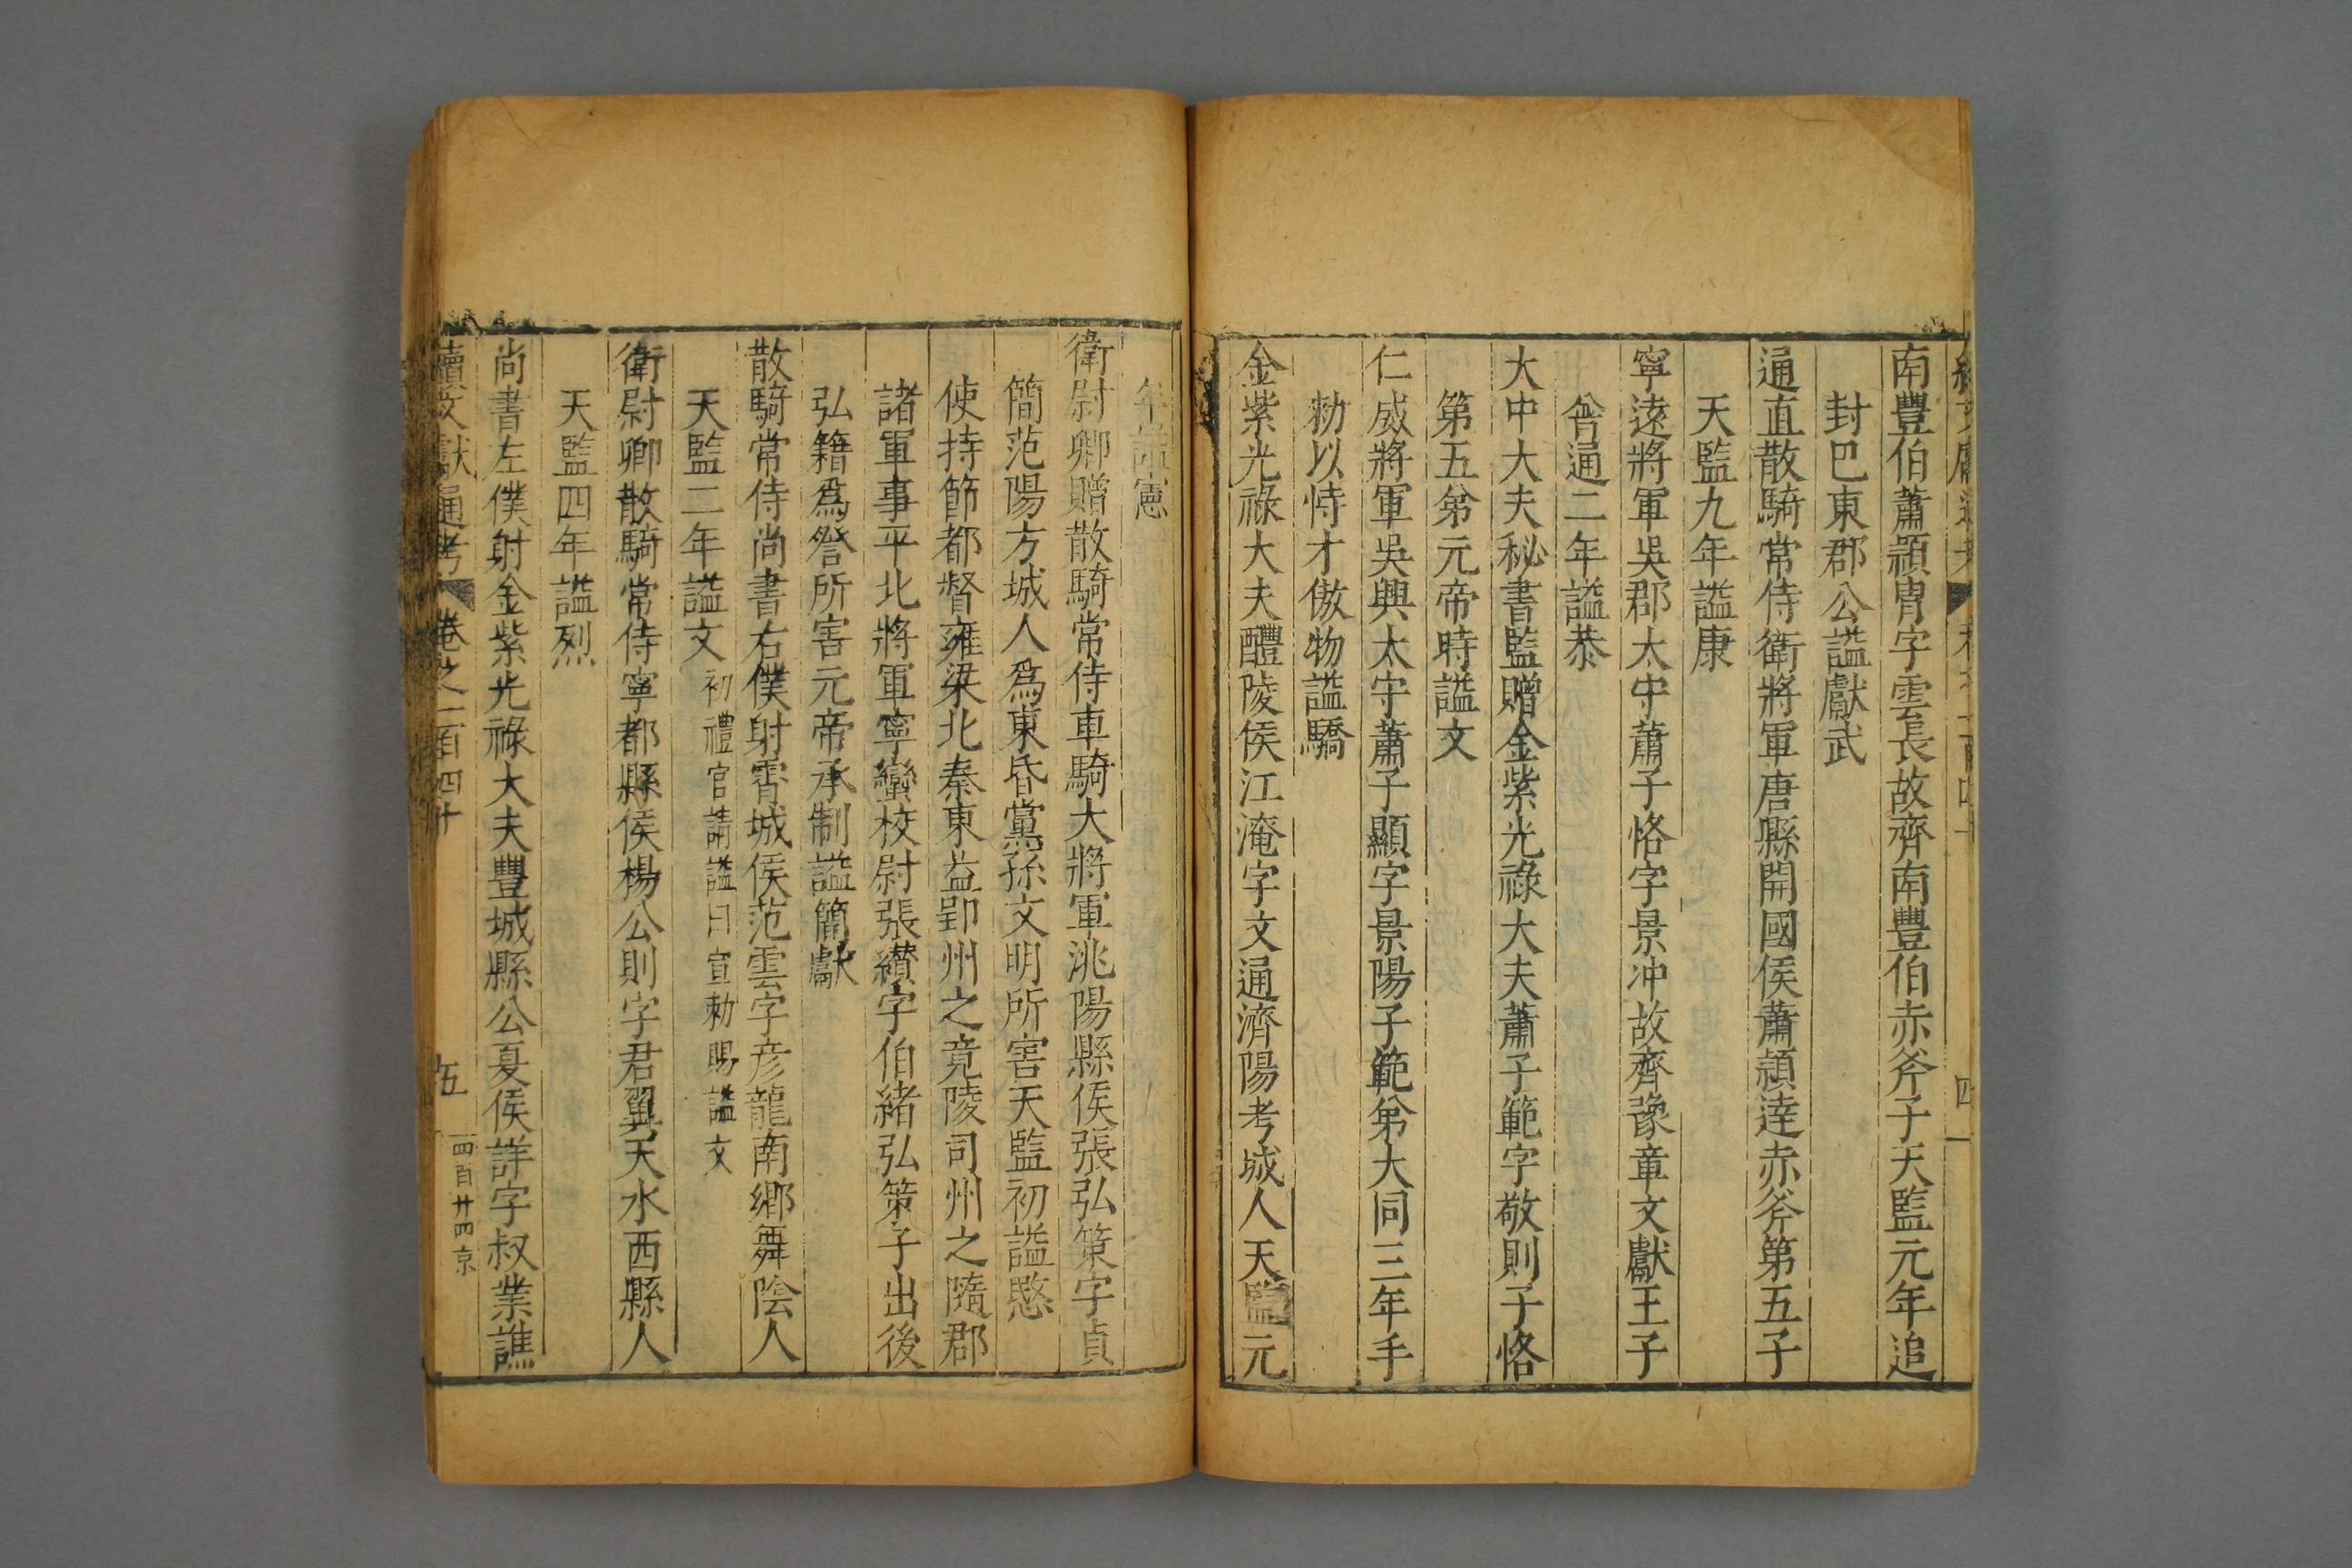 南豐伯蕭穎冑字雲長故齊南豐伯赤斧子天監元年追
封巴東郡公謚獻武
通直散騎常侍衛將軍唐縣開國侯蕭穎達赤斧第五子
天監九年謚康
寧遠將軍吳郡太守蕭子恪字景冲故齊豫章文獻王子
普通二年謚恭
大中大夫秘書監贈金紫光祿大夫蕭子範字敬則子恪
第五弟元帝時謚文
仁威將軍吳興太守蕭子顯字景陽子範弟大同三年手
勑以恃才傲物謚驕
金紫光祿大夫醴陵侯江淹字文通濟陽考城人天監元
年謚憲
衛尉卿贈散騎常侍車騎大將軍洮陽縣侯張弘策字貞
簡范陽方城人爲東昏黨孫文明所害天監初謚愍
使持節都督雍梁北秦東益郢州之竟陵司州之隨郡
諸軍事平北將軍寧蠻校尉張纘字伯緒弘策子出後
弘籍爲詧所害元帝承制謚簡獻
散騎常侍尚書右僕射霄城侯范雲字彦龍南鄉舞陰人
天監二年謚文初禮官請謚曰宣勑賜謚文
衛尉卿散騎常侍寧都縣侯楊公則字君翼天水西縣人
天監四年謚烈
尚書左僕射金紫光祿大夫豐城縣公夏侯詳字叔業譙
續文獻通考 卷之一百四十 五 四百廿四京